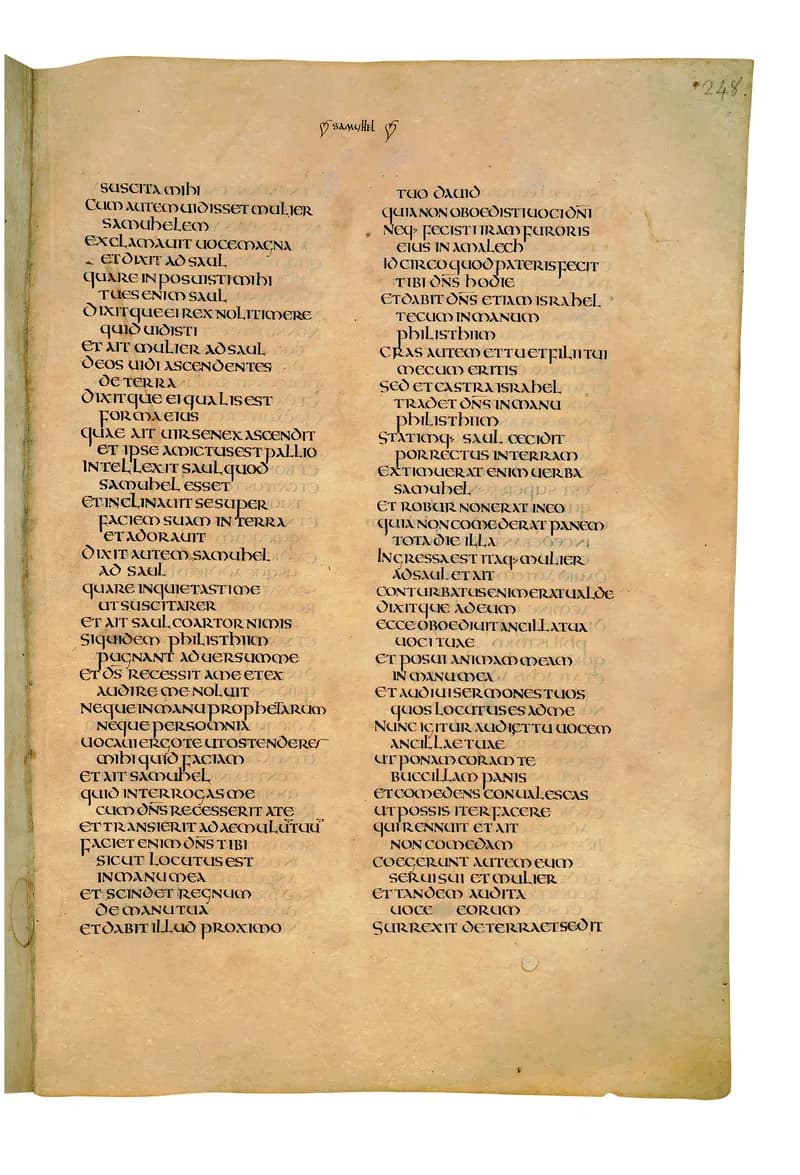 248.
SAMUHEL
SUSCITA MIHI
CUM AUTEM UIDISSET MULIER
SAMUHELEM
EXCLAMAUIT UOCE MAGNA
ET DIXIT AD SAUL
QUARE INPOSUISTI MIHI
TU ES ENIM SAUL
DIXITQUE EI REX NOLI TIMERE
QUID UIDISTI
ET AIT MULIER AD SAUL
DEOS UIDI ASCENDENTES
DE TERRA
DIXITQUE EI QUALIS EST
FORMA EIUS
QUAE AIT UIR SENEX ASCENDIT
ET IPSE AMICTUS EST PALLIO
INTELLEXIT SAUL QUOD
SAMUHEL ESSET
ET INCLINAUIT SE SUPER
FACIEM SUAM IN TERRA
ET ADORAUIT
DIXIT AUTEM SAMUHEL
AD SAUL
QUARE INQUIETASTI ME
UT SUSCITARER
ET AIT SAUL COARTOR NIMIS
SIQUIDEM PHILISTHIIM
PUGNANT ADUERSUM ME
ET D̄S RECESSIT A ME ET EX
AUDIRE ME NOLUIT
NEQUE IN MANU PROPHETARUM
NEQUE PER SOMNIA
UOCAUI ERGO TE UT OSTENDERES
MIHI QUID FACIAM
ET AIT SAMUHEL
QUID INTERROGAS ME
CUM DN̄S RECESSERIT A TE
ET TRANSIERIT AD AEMULŪ TUŪ
FACIET ENIM DN̄S TIBI
SICUT LOCUTUS EST
IN MANU MEA
ET SCINDET REGNUM
DE MANU TUA
ET DABIT ILLUD PROXIMO
TUO DAUID
QUIA NON OBOEDISTI UOCI DN̄I
NEQ· FECISTI IRAM FURORIS
EIUS IN AMALECH
IDCIRCO QUOD PATERIS FECIT
TIBI DN̄S HODIE
ET DABIT DN̄S ETIAM ISRAHEL
TECUM IN MANUM
PHILISTHIIM
CRAS AUTEM ET TU ET FILII TUI
MECUM ERITIS
SED ET CASTRA ISRAHEL
TRADET DN̄S IN MANU
PHILISTHIIM
STATIMQ· SAUL CECIDIT
PORRECTUS IN TERRAM
EXTIMUERAT ENIM UERBA
SAMUHEL
ET ROBUR NON ERAT IN EO
QUIA NON COMEDERAT PANEM
TOTA DIE ILLA
INGRESSA EST ITAQ· MULIER
AD SAUL ET AIT
CONTURBATUS ENIM ERAT UALDE
DIXITQUE AD EUM
ECCE OBOEDIUIT ANCILLA TUA
UOCI TUAE
ET POSUI ANIMAM MEAM
IN MANU MEA
ET AUDIUI SERMONES TUOS
QUOS LOCUTUS ES AD ME
NUNC IGITUR AUDI ET TU UOCEM
ANCILLAE TUAE
UT PONAM CORAM TE
BUCCILLAM PANIS
ET COMEDENS CONUALESCAS
UT POSSIS ITER FACERE
QUI RENNUIT ET AIT
NON COMEDAM
COEGERUNT AUTEM EUM
SERUI SUI ET MULIER
ET TANDEM AUDITA
UOCE EORUM
SURREXIT DE TERRA ET SEDIT